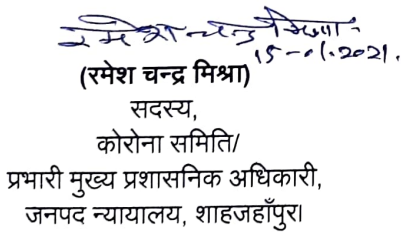 रमेश चन्द्र मिश्रा
15-01.2021.
(रमेश चन्द्र मिश्रा)
सदस्य,
कोरोना समिति/
प्रभारी मुख्य प्रशासनिक अधिकारी,
जनपद न्यायालय, शाहजहाँपुर।